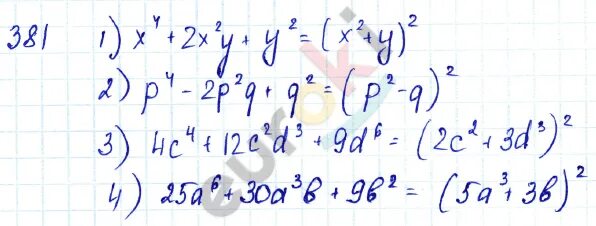 381 1) x⁴ + 2x²y + y² = (x² + y)²
2) p⁴ - 2p²q + q² = (p² - q)²
3) 4c⁴ + 12c²d³ + 9d⁶ = (2c² + 3d³)²
4) 25a⁶ + 30a³b + 9b² = (5a³ + 3b)²
euroki